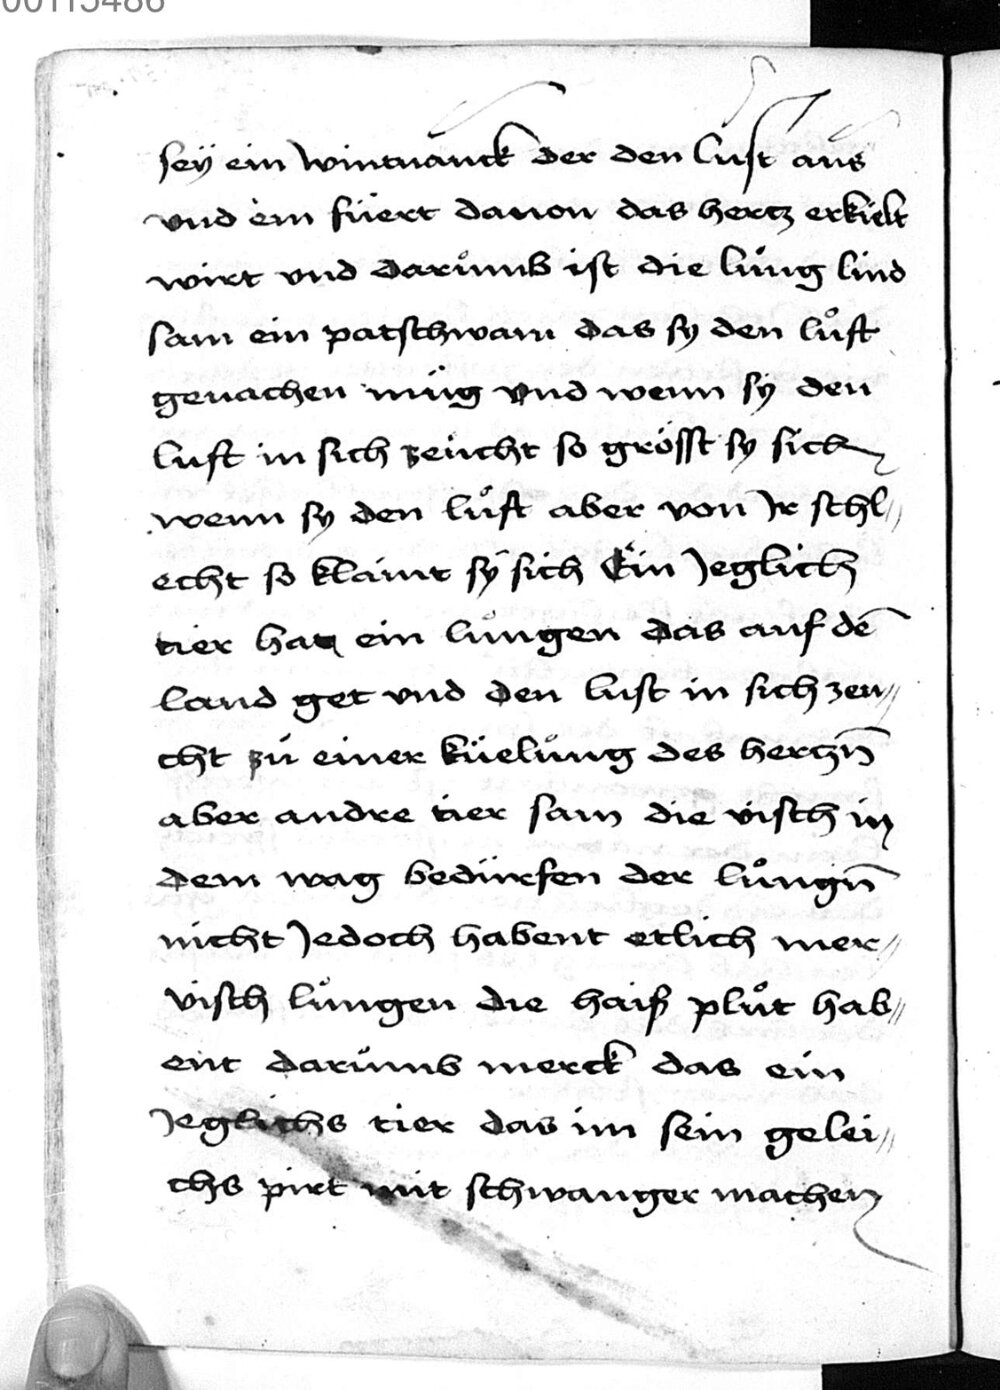 00115486
seÿ ein wintuanck der den lust aus
vnd ein füert dauon das hertz erkielt
wirt vnd darůmb ist die lůng lind
sam ein patschwam das sy den lůft
geuachen müg vnd wenn sÿ den
luft in sich zeücht so grösst sy sich
wenn sy den lůft aber von Jr schl//
echt so klaint sÿ sich Ein Jeglich
tier hat ein lůngen das auf dē
land get vnd den luft in sich zeu//
cht zů einer küelůng des hertzn̄
aber andre tier sam die visch in
dem wag bedürfen der lůngn̄
nicht Jedoch habent etlich mer//
visch lůngen die haiß plůt hab//
ent darůmb merck das ein
Jeglichs tier das im sein gelei//
chs pirt mit schwanger machen